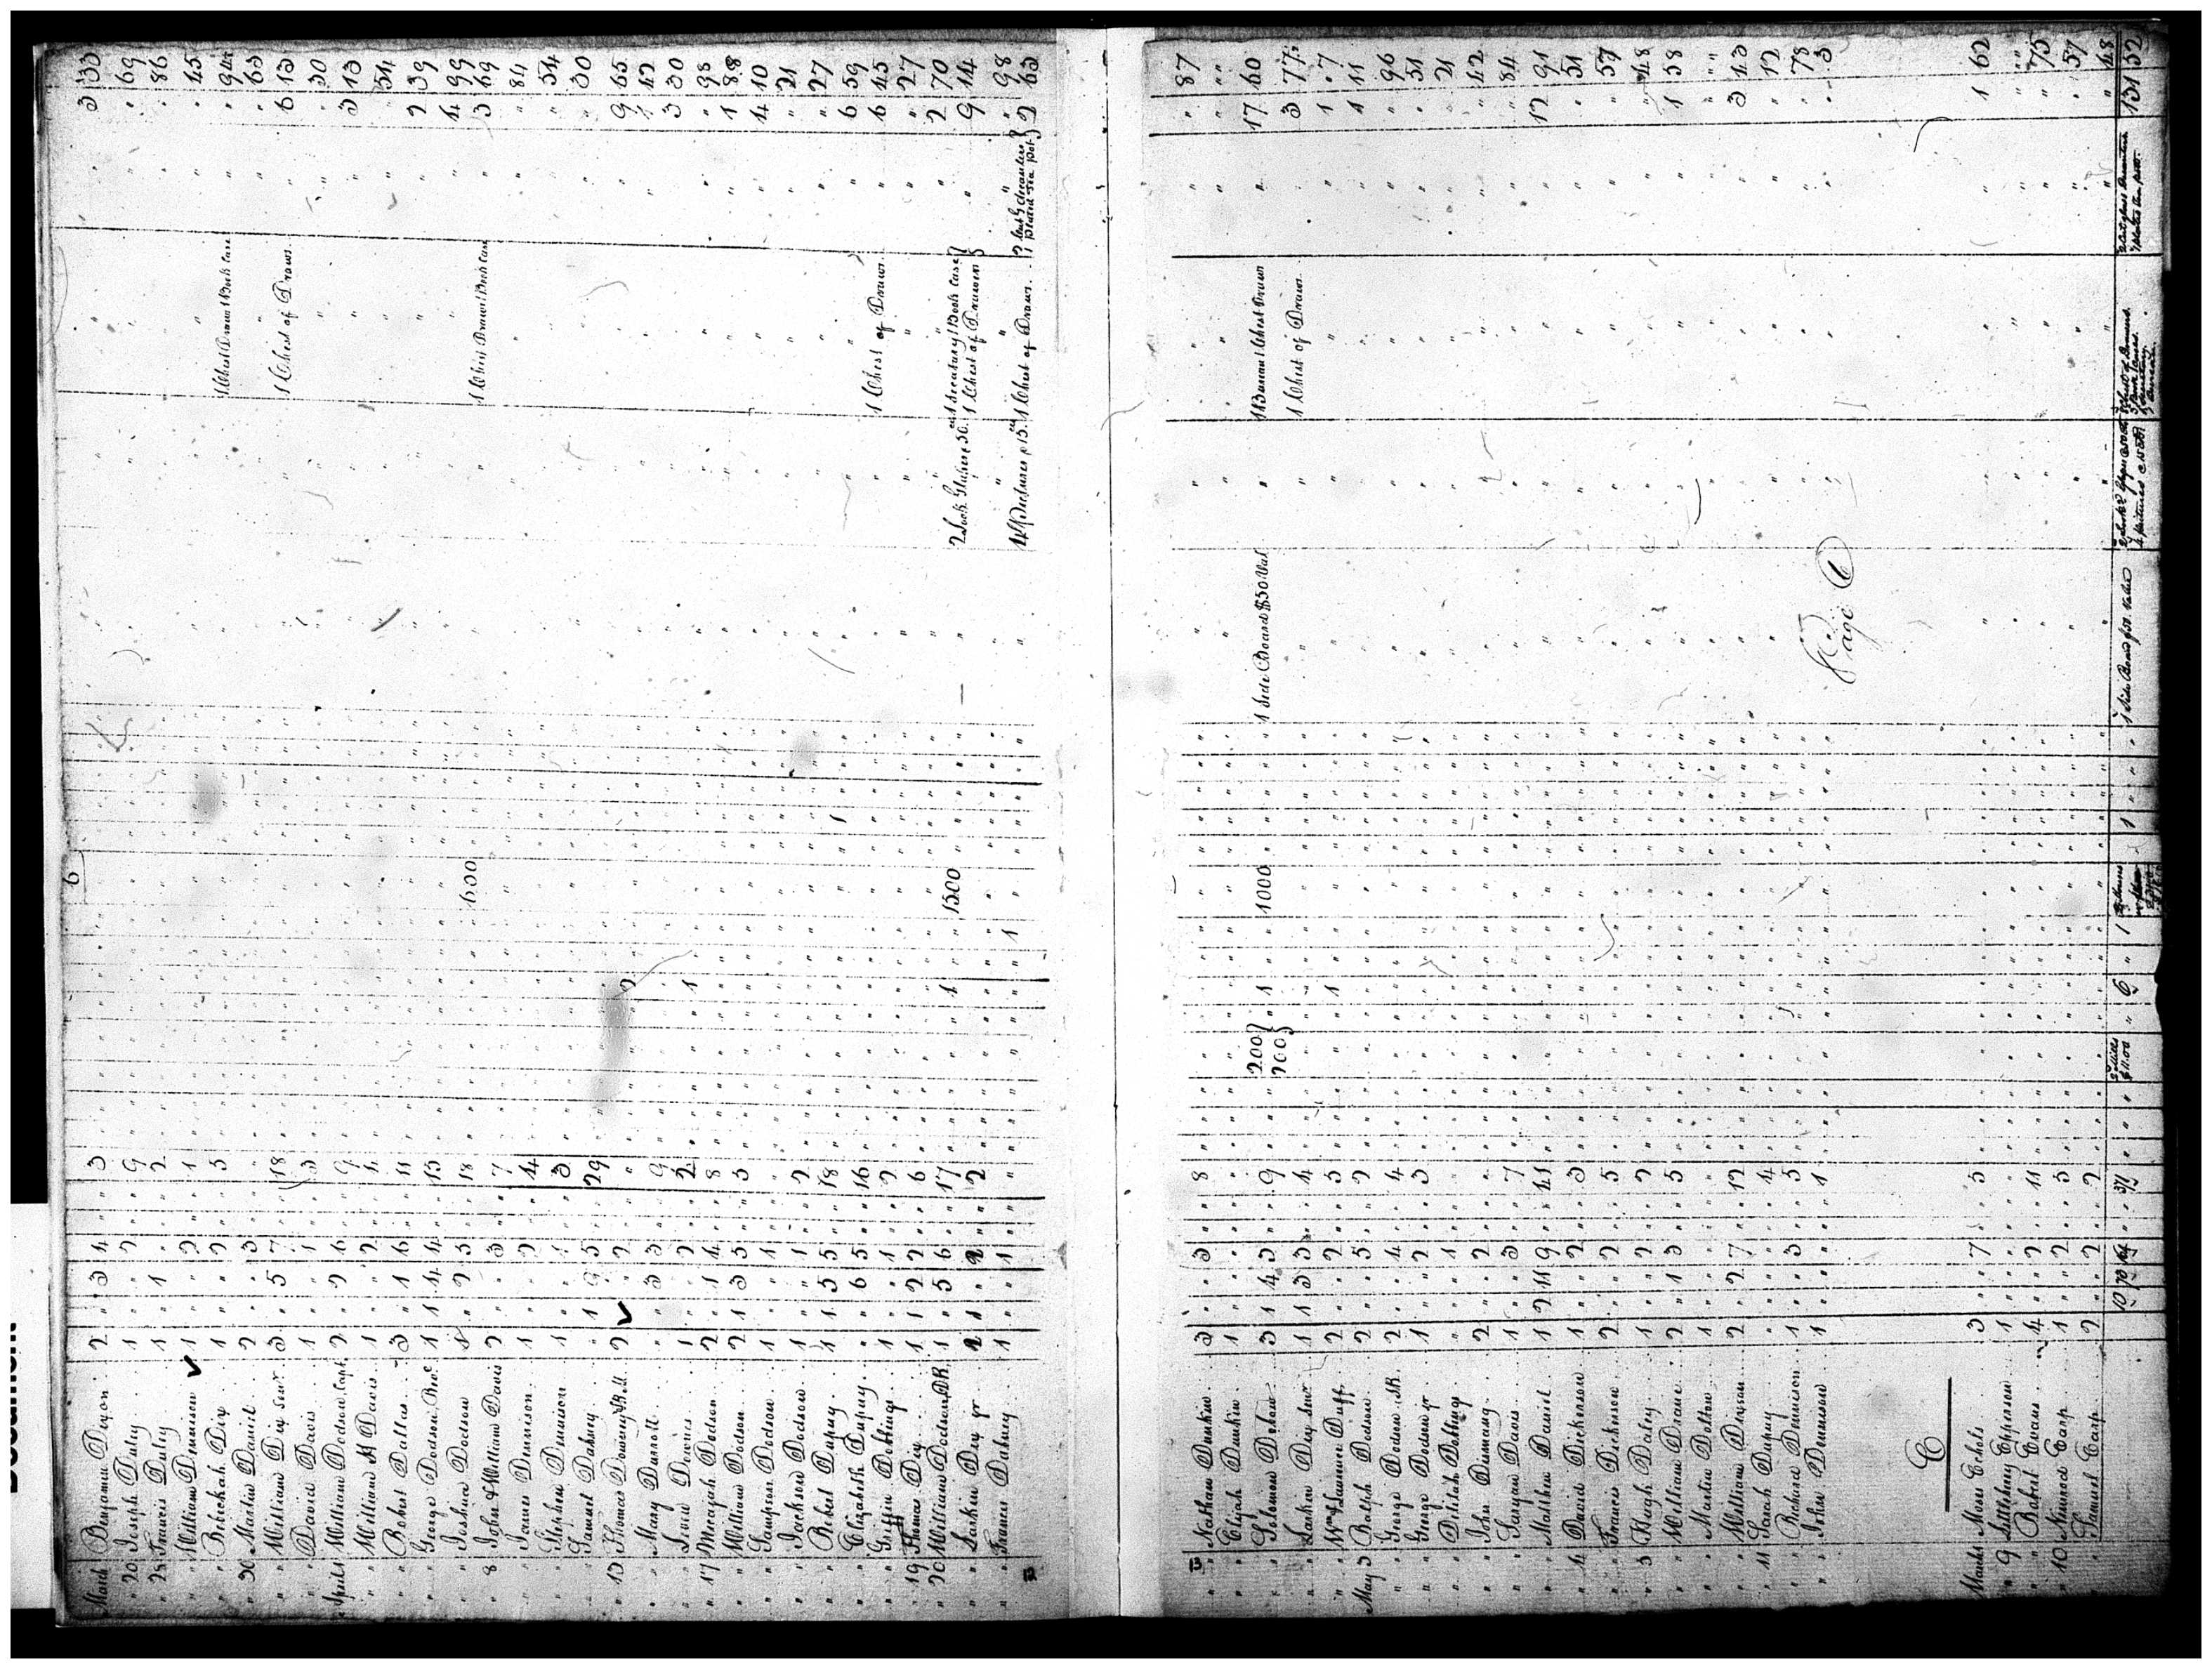 6
March Benjamin Dixon 2 3 4 3 3 33
" 20 Joseph Duley 1 2 9 69
" 28 Francis Duley 1 1 2 86
" " William Dennison 1 2 1 45
" " Rebeckah Dix 1 2 3 1 Chest Draws 1 Book Case 94
" 30 Martin Daniel 2 3 63
" " William Dix Senr 3 5 7 18 1 Chest of Draws 6 13
" " David Davis 1 1 3 30
April William Dodson Capt 2 2 6 9 3 13
" " William H Davis 1 2 4 54
" " Robert Dallas 3 1 6 11 2 39
" " George Dodson 1 1 4 4 13 4 99
" " Joshua Dodson 1 2 5 18 600 1 Chest Draws 1 Book Case 3 69
" 8 John & William Davis 2 3 7 84
" " James Dennison 1 2 4 54
" " Stephen Dennison 1 1 3 30
" " Samuel Dabney 1 9 5 29 9 65
" 13 Thomas Downey 2 2 2 42
" " Mary Durrett 3 3 9 3 30
" " Lewis Downes 1 2 1 2 98
" 17 Micajah Dodson 2 1 4 8 1 88
" " William Dodson 2 1 3 5 3 4 10
" " Sampson Dodson 1 1 21
" " Jackson Dodson 1 1 2 27
" " Robert Dupuy 1 1 5 5 18 1 6 59
" " Elizabeth Dupuy 6 5 16 1 Chest of Draws 6 45
" " Griffin Dollings 1 1 2 27
" 19 Thomas Dix 1 1 2 2 6 2 70
" 20 William Dodson 1 5 6 17 1 1500 2 Look Glases 50 1 Secretary 1 Book Case 1 Chest of Drawers 9 14
" " Larkin Dix jr 2 1 2 2 98
" " Frances Dabney 1 1 1 4 Pictures 15 1 Chest of Draws 2 Cut G decanters 1 plated Tea pot 2 63
" " Nathan Dunkin 3 3 8 87
" " Elijah Dunkin 1
" " Solomon Debow 3 1 4 3 9 200 200 1 1000 1 Side Board $50 Val 1 Bureau 1 Chest Draws 17 60
" " Larkin Dix Senr 1 1 3 3 4 1 Chest of Draws 3 77
" " Wm & Samuel Duff 2 2 3 1 1 7
May 3 Ralph Dodson 2 5 2 1 11
" " George Dodson SR 2 4 4 96
" " George Dodson jr 1 2 3 51
" " Delilah Dollings 1 21
" " John Dismang 2 2 42
" " Sanyan Davis 1 3 7 84
" " Matthew Daniel 1 2 11 9 41 12 91
" 4 David Dickinson 1 2 3 51
" " Francis Dickinson 2 2 5 57
" 5 Hugh Daley 1 2 2 48
" " William Drane 2 1 3 5 1 58
" " Martin Dolton 1
" " William Dixson 2 2 7 12 3 43
" 11 Sarah Dupuy 4 12
" " Richard Dennison 1 3 5 78
" " John Dennison 1 1 3
Page 6
E
March Moses Echols 3 7 5 1 62
" 9 Littlebury Epperson 1
" " Robert Evans 4 2 11 75
" 10 Nimrod Earp 1 2 3 57
" " Samuel Earp 2 2 2 48
1 Side Board $50 Value 131 52